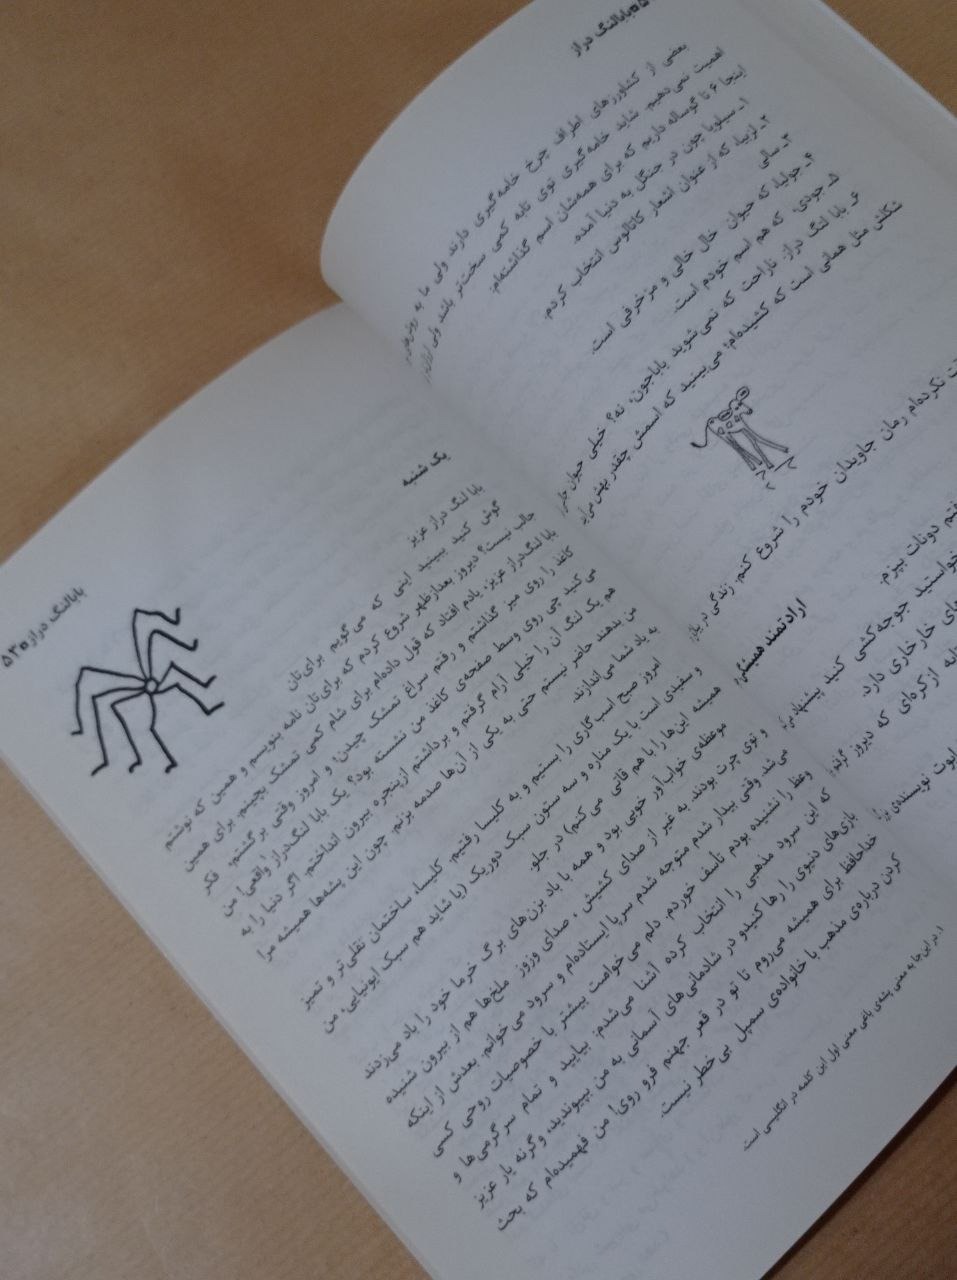 بابالنگ دراز
بعضی از کشاورزهای اطراف چرخ خامه‌گیری دارند ولی ما به روش‌های
اهمیت نمی‌دهیم. شاید خامه‌گیری توی تابه کمی سخت‌تر باشد ولی
اینجا ۶ تا گوساله داریم که برای همه‌شان اسم گذاشته‌ام:
۱ـ سیلویا چون در جنگل به دنیا آمده.
۲ـ لزبیا، که از عنوان اشعار کاتالوس انتخاب کردم.
۳ـ سالی
۴ـ جولیا، که حیوان خال خالی و مزخرفی است.
۵ـ جودی، که هم اسم خودم است.
۶ـ بابا لنگ دراز. ناراحت که نمی‌شوید باباجون، نه؟ خیلی حیوان
شکلش مثل همانی است که کشیده‌ام؛ می‌بینید که اسمش چقدر بهش
نکرده‌ام رمان جاویدان خودم را شروع کنم. زندگی در
ارادتمند همیشگی
دونات بپزم.
جوجه‌کشی کنید پیشنهاد
خارخاری دارد.
از کره‌ای که دیروز
نویسنده‌ی
بابالنگ دراز ۵۳
یک شنبه
بابا لنگ دراز عزیز
گوش کنید ببینید اینی که می‌گویم برای‌تان
جالب نیست؟ دیروز بعدازظهر شروع کردم که برای‌تان نامه بنویسم و همین که نوشتم
بابا لنگ‌دراز عزیز، یادم افتاد که قول داده‌ام برای شام کمی تمشک بچینم. برای همین
کاغذ را روی میز گذاشتم و رفتم سراغ تمشک چیدن؛ و امروز وقتی برگشتم، فکر
می‌کنید چی روی وسط صفحه‌ی کاغذ من نشسته بود؟ یک بابا لنگ‌دراز واقعی! من
هم یک لنگ آن را خیلی آرام گرفتم و برداشتم ازپنجره بیرون انداختم. اگر دنیا را به
من بدهند حاضر نیستم حتی به یکی از آن‌ها صدمه بزنم. چون این پشه‌ها همیشه مرا
به یاد شما می‌اندازند.
امروز صبح اسب گاری را بستیم و به کلیسا رفتیم. کلیسا، ساختمان نقلی‌تر و تمیز
و سفیدی است با یک مناره و سه ستون سبک دوریک (یا شاید هم سبک ایونیایی، من
همیشه این‌ها را با هم قاتی می کنم) در جلو.
موعظه‌ی خواب‌آور خوبی بود و همه با باد بزن‌های برگ خرما خود را باد می‌زدند
و توی چرت بودند به غیر از صدای کشیش ، صدای وزوز ملخ‌ها هم از بیرون شنیده
می شد. وقتی بیدار شدم متوجه شدم سرپا ایستاده‌ام و سرود می خوانم. بعدش از اینکه
وعظ را نشنیده بودم تأسف خوردم. دلم می خواست بیشتر با خصوصیات روحی کسی
که این سرود مذهبی را انتخاب کرده آشنا می شدم: بیایید و تمام سرگرمی‌ها و
بازی‌های دنیوی را رها کنیدو در شادمانی‌های آسمانی به من بپیوندید، وگرنه یار عزیز
خداحافظ برای همیشه می‌روم تا تو در قعر جهنم فرو روی! من فهمیده‌ام که بحث
کردن درباره‌ی مذهب با خانواده‌ی سمپل بی خطر نیست.
۱. دراین‌جا به معنی پشه‌ی باغی معنی اول این کلمه در انگلیسی است.